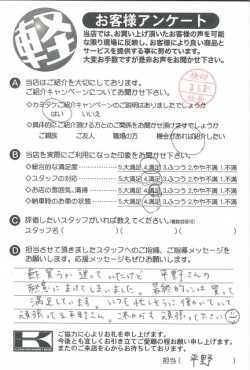 軽
お客様アンケート
当店では、お買い上げ頂いたお客様の声を可能
な限り現場に反映し、お客様により良い商品と
サービスを提供する事に努めています。
大変お手数ですが是非お声をお聞かせ下さい。
A 当店はご紹介を大切にしております。
ご紹介キャンペーンについてお聞かせ下さい。
・カミタケご紹介キャンペーンのご説明はありましたでしょうか
はい いいえ
・具体的にご紹介頂ける方とのご関係をお聞かせ頂けますでしょうか
ご親族 ご友人 職場の方 機会があれば紹介したい
B 当店を実際にご利用になった印象をお聞かせ下さい。
・総合的な満足度 5.大満足 4.満足 3.ふつう 2.やや不満 1.不満
・スタッフの対応 5.大満足 4.満足 3.ふつう 2.やや不満 1.不満
・お店の雰囲気、清掃 5.大満足 4.満足 3.ふつう 2.やや不満 1.不満
・納車時のお車の状態 5.大満足 4.満足 3.ふつう 2.やや不満 1.不満
C 評価したいスタッフがいれば教えてください。
スタッフ名( )( )( )
D 担当させて頂きましたスタッフへのご指摘、ご指導メッセージを
お願いします。応援メッセージもぜひお願いします。
軽を買うか迷っていたけど 平野さんの
熱意にまけてしまいました。最終的には買って
満足しています。いつも忙しそうに働いていて
頑張ってる平野さん。これからも頑張ってください
K
ご協力に心よりお礼を申し上げます。
今後とも宜しくお引き立てご愛顧の程お願い申し上げます。
またのご来店を心からお待ちしております。
担当( 平野 )